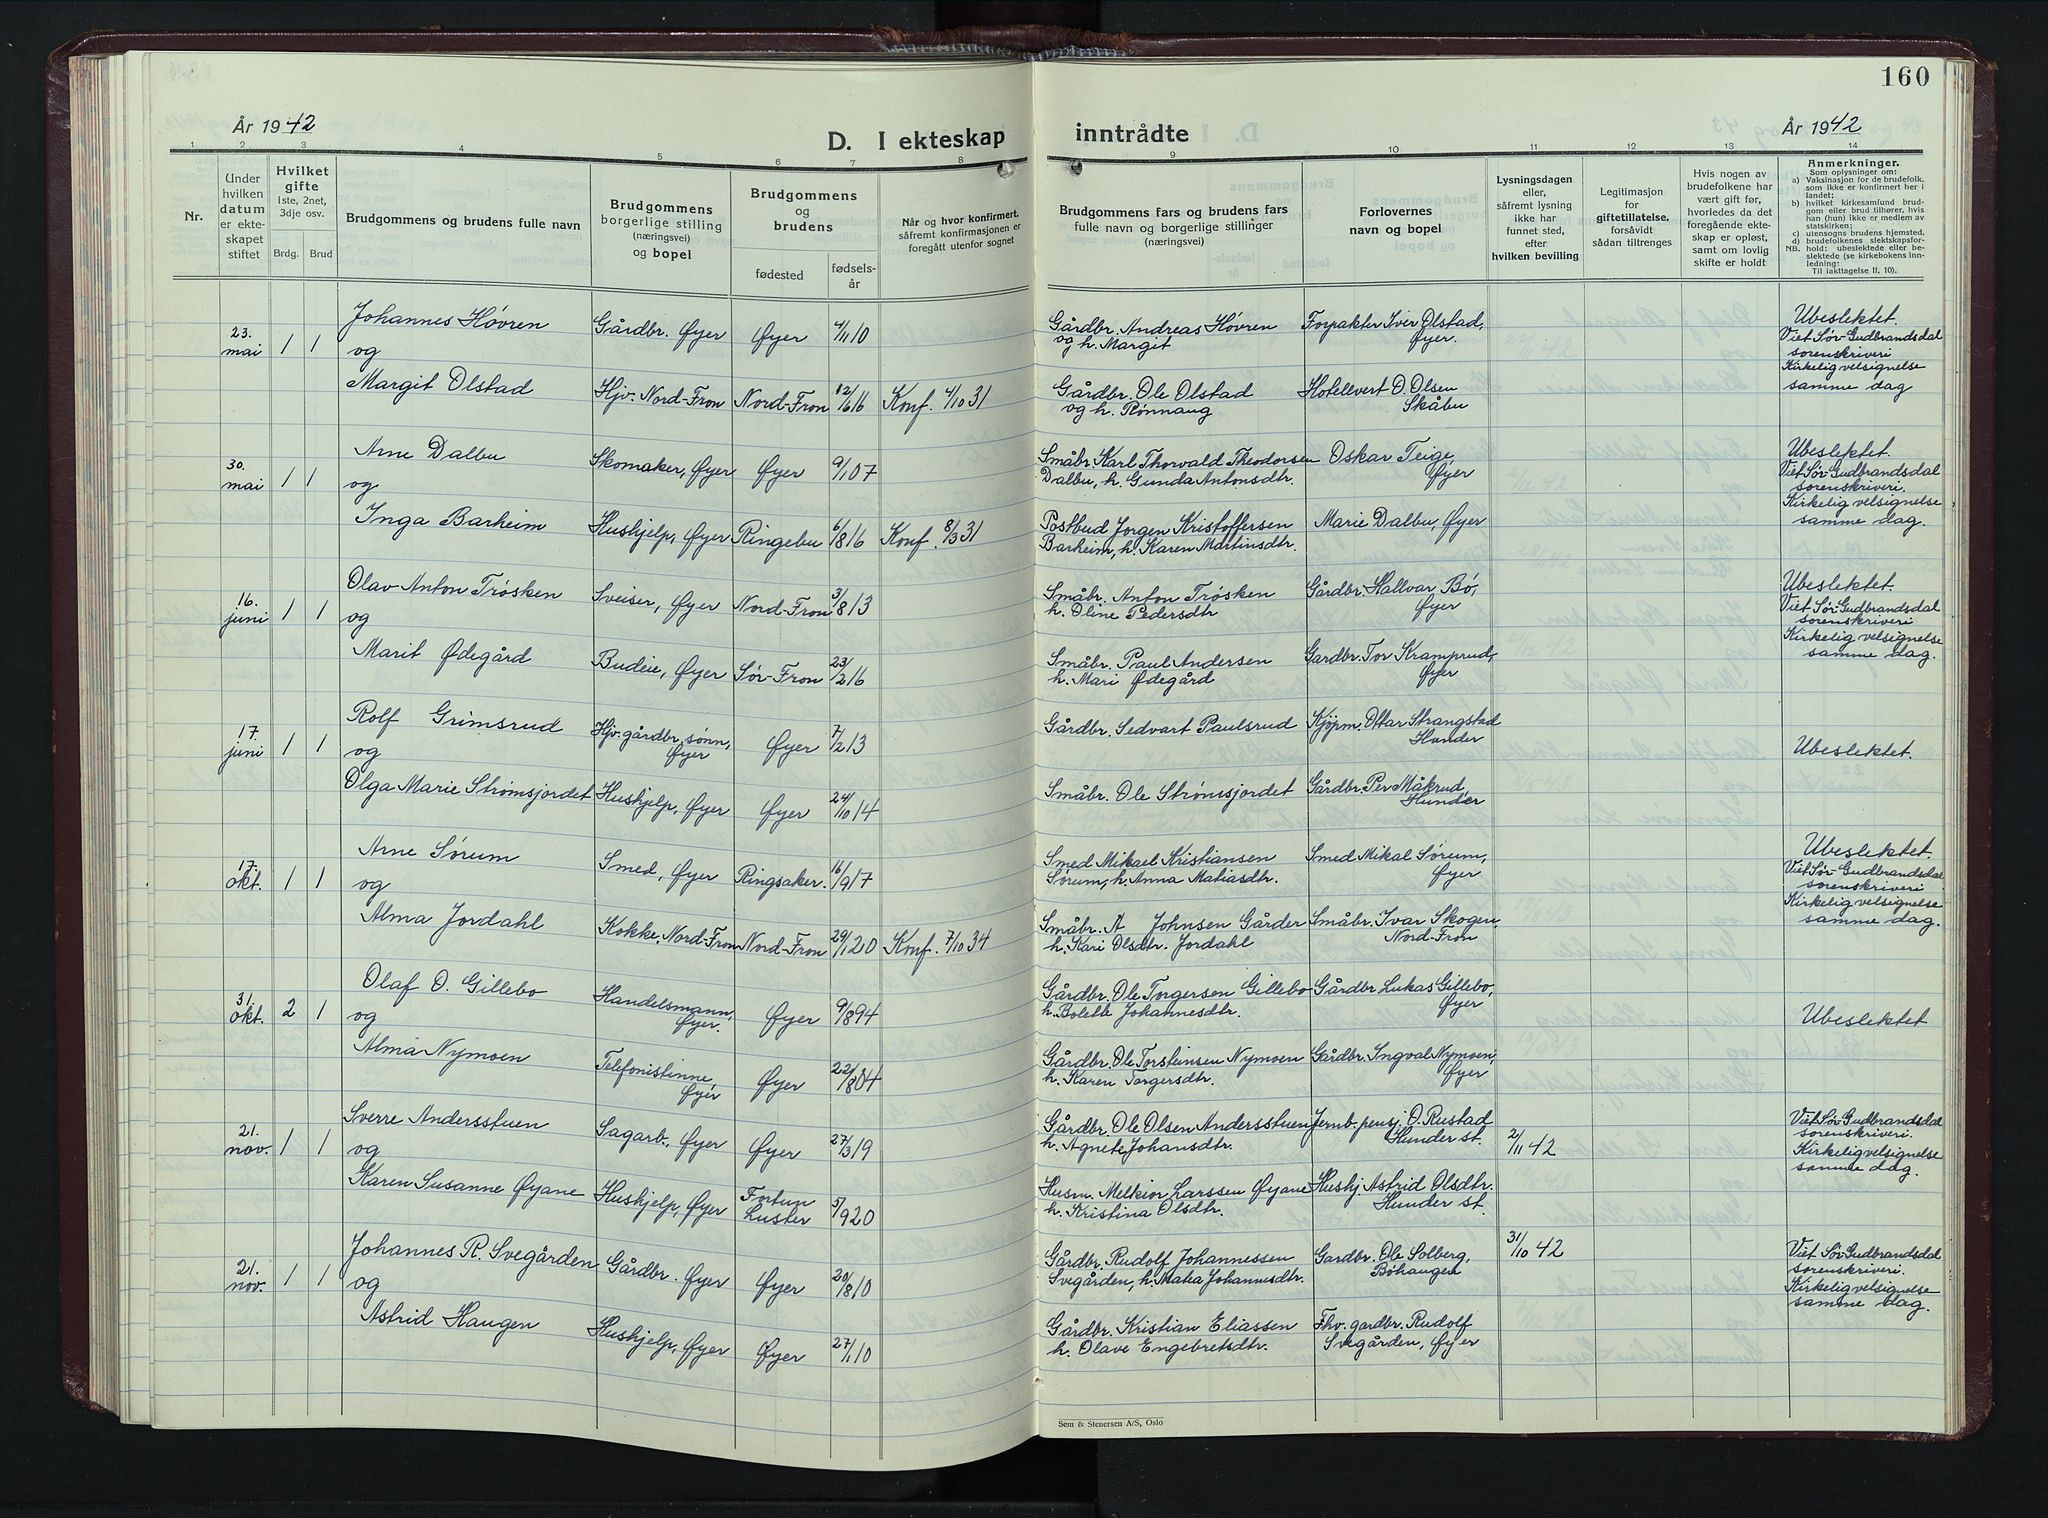 160
År 1942
D. I ekteskap inntrådte
År 1942
1 2 3 4 5 6 7 8 9 10 11 12 13 14
Nr.
Under
hvilken
datum
er ekte-
skapet
stiftet
Hvilket
gifte
1ste, 2net,
3dje osv.
Brdg. Brud
Brudgommens og brudens fulle navn
Brudgommens
borgerlige stilling
(næringsvei)
og bopel
Brudgommens
og
brudens
fødested
fødsels-
år
Når og hvor konfirmert,
såfremt konfirmasjonen er
foregått utenfor sognet
Brudgommens fars og brudens fars
fulle navn og borgerlige stillinger
(næringsvei)
Forlovernes
navn og bopel
Lysningsdagen
eller,
såfremt lysning
ikke har
funnet sted,
efter
hvilken bevilling
Legitimasjon
for
giftetillatelse,
forsåvidt
sådan tiltrenges
Hvis nogen av
brudefolkene har
vært gift før,
hvorledes da det
foregående ekte-
skap er opløst,
samt om lovlig
skifte er holdt
Anmerkninger.
Som oplysninger om:
a) Vaksinasjon for de brudefolk.
som ikke er konfirmert her i
landet;
b) hvilket kirkesamfund brud-
gom eller brud tilhører, hvis
han (hun) ikke er medlem av
statskirken;
c) utensogns brudens hjemsted.
d) brudefolkenes slektskapsfor-
hold: ubeslektede eller be-
slektede (se kirkebokens inn-
ledning:
Til iakttagelse II. 10).
NB.
23.
mai
1 1
Johannes Høvren
og
Margit Olstad
Gårdbr. Øyer
Øyer
4/11 10
Hjv. Nord-Fron
Nord-Fron
12/6 16
Konf. 4/10 31
Gårdbr. Andreas Høvren
og h. Margit
Gårdbr. Ole Olstad
og h. Rønnaug
Forpakter Iver Olstad,
Øyer.
Hotellvert O. Olsen
Skåbu
Ubeslektet.
Viet Sør-Gudbrandsdal
sorenskriveri
Kirkelig velsignelse
samme dag
30.
mai
1 1
Arne Dalbu
og
Inga Barheim
Skomaker, Øyer
Øyer
9/1 07
Hushjelp, Øyer
Ringebu
6/8 16
Konf. 8/3 31
Småbr. Karl Thorvald Theodorsen
Dalbu, h. Gunda Antonsdtr.
Postbud Jorgen Kristoffersen
Barheim, h. Karen Martinsdtr.
Oskar Teige,
Øyer
Marie Dalbu, Øyer
Ubeslektet.
Viet Sør-Gudbrandsdal
sorenskriveri.
Kirkelig velsignelse
samme dag.
16.
juni
1 1
Olav Anton Trøsken
og
Marit Ødegård
Sveiser, Øyer
Nord-Fron
3/8 13
Budeie, Øyer
Sør-Fron
23/2 16
Småbr. Anton Trøsken
h. Oline Pedersdtr
Småbr. Paul Andersen
h. Mari Ødegård
Gårdbr. Hallvar Bø,
Øyer
Gardbr. Tor Kramprud,
Øyer
Ubeslektet.
Viet Sør-Gudbrandsdal
sorenskriveri
Kirkelig velsignelse
samme dag.
17.
juni
1 1
Rolf Grimsrud
og
Olga Marie Strømsjordet
Hjv. gårdbr. sønn,
Øyer
Øyer
7/2 13
Hushjelp, Øyer
Øyer
24/10 14
Gårdbr. Sedvart Paulsrud
Småbr. Ole Strømsjordet
Kjøpm. Ottar Strangstad
Hunder
Gårdbr. Per Måkrud,
Hunder
Ubeslektet.
17.
okt.
1 1
Arne Sørum
og
Alma Jordahl
Smed, Øyer
Ringsaker.
16/9 17
Kokke, Nord-Fron
Nord-Fron
29/1 20
Konf. 7/10 34
Smed Mikael Kristiansen
Sørum, h. Anna Matiasdtr.
Småbr. A Johnsen Gårder
h. Kari Olsdtr. Jordahl
Smed Mikal Sørum,
Øyer
Småbr. Ivar Skogen,
Nord-Fron
Ubeslektet.
Viet Sør-Gudbrandsdal
sorenskriveri
Kirkelig velsignelse
samme dag.
31.
okt.
2 1
Olaf O. Gillebo
og
Alma Nymoen
Handelsmann,
Øyer.
Øyer
9/8 94
Telefonistinne,
Øyer
Øyer
22/8 04
Gårdbr. Ole Torgersen Gillebo
h. Bolette Johannesdtr.
Gårdbr. Ole Torsteinsen Nymoen
h. Karen Torgersdtr.
Gårdbr. Lukas Gillebo,
Øyer
Gårdbr. Ingval Nymoen,
Øyer
Ubeslektet
21.
nov.
1 1
Sverre Andersstuen
og
Karen Susanne Øyane
Sagarb., Øyer
Øyer
27/3 19
Hushjelp, Øyer
Fortun
Luster
5/9 20
Gårdbr. Ole Olsen Andersstuen
h. Agnete Johansdtr.
Husm. Melkior Larssen Øyane
h. Kristina Olsdtr.
Jernb. pensj. O. Rustad
Hunder st.
Hushj. Astrid Olsdtr.
Hunder st.
2/11 42
Viet Sør-Gudbrandsdal
sorenskriveri.
Kirkelig velsignelse
samme dag.
21.
nov.
1 1
Johannes R. Svegården
og
Astrid Haugen
Gårdbr. Øyer
Øyer
20/8 10
Hushjelp, Øyer
Øyer
27/1 10
Gårdbr. Rudolf Johannessen
Svegården, h. Matea Johannesdtr.
Gårdbr. Kristian Eliassen
h. Olave Engebretsdtr.
Gardbr. Ole Solberg,
Bøhaugen
Fhv. gardbr. Rudolf
Svegården, Øyer
31/10 42
Viet Sør-Gudbrandsdal
sorenskriveri.
Kirkelig velsignelse
samme dag.
Sem & Stenersen A/S, Oslo